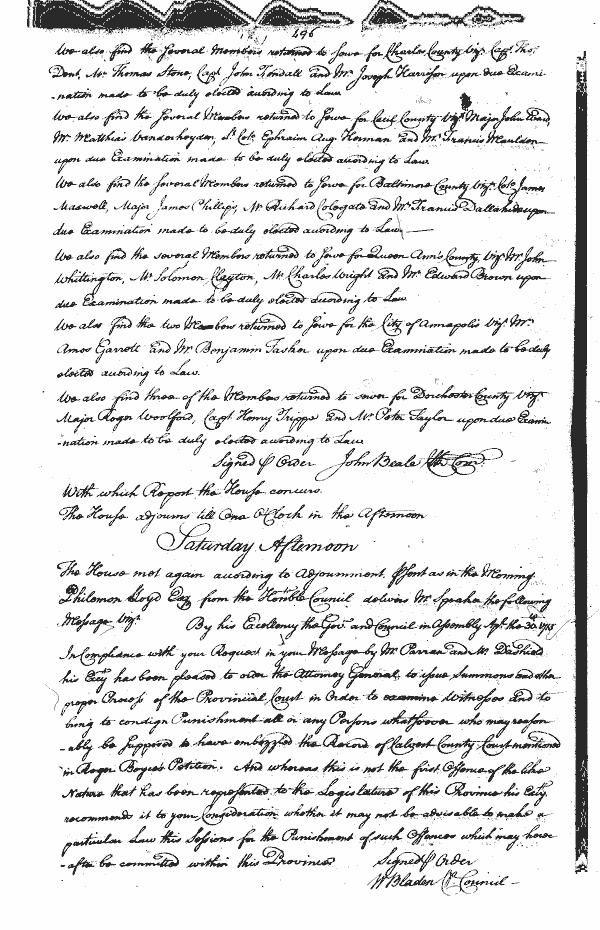 496
We also find the several Members returned to serve for Charles County viz. Capt. Tho:
Dent, Mr Thomas Stone, Capt John Fendall and Mr Joseph Harrison upon due Exami-
-nation made to be duly elected according to Law
We also find the several Members returned to serve for Cecil County viz. Major John Dowdall,
Mr Matthias Vanderheyden, Lt Colo Ephraim Aug. Herman and Mr Francis Mauldon
upon due Examination made to be duly elected according to Law.
We also find the several Members returned to serve for Baltimore County viz. Colo James
Maxwell, Major James Phillips, Mr Richard Colegate and Mr Francis Dallahide upon
due Examination made to be duly elected according to Law.
We also find the several Members returned to serve for Queen Ann's County, viz. Mr John
Whittington, Mr Solomon Clayton, Mr Charles Wright and Mr Edward Brown upon
due Examination made to be duly elected according to Law
We also find the two Members returned to serve for the City of Annapolis viz. Mr
Amos Garrett and Mr Benjamin Tasker upon due Examination made to be duly
elected according to Law.
We also find three of the Members returned to serve for Dorchester County viz.
Major Roger Woolford, Capt Henry Trippe and Mr Peter Taylor upon due Exami
-nation made to be duly elected according to Law
Signed P Order John Beale Com.
With which Report the House concurs.
The House adjourns till One O'Clock in the Afternoon
Saturday Afternoon
The House met again according to Adjournment. Present as in the Morning
Philemon Lloyd Esq from the Honble Council delivers Mr Speaker the following
Message viz. By his Excellency the Govr and Council in Assembly
In Compliance with your Request in your Message by Mr Parran and Mr Dashield
his Excy has been pleased to order the Attorney General, to issue Summons and other
proper Process of the Provincial Court in Order to examine Witnesses and to
bring to condign Punishment all or any Persons whatsoever who may reason
-ably be supposed to have embezzled the Record of Calvert County Court mentioned
in Roger Boyce's Petition. And whereas this is not the first Offence of the like
Nature that has been represented to the Legislature of this Province his Excy
recommends it to your Consideration whether it may not be adviseable to make a
particular Law this Sessions for the Punishment of such Offences which may here
-after be committed within this Province
Signed P Order
W Bladen Cl Council